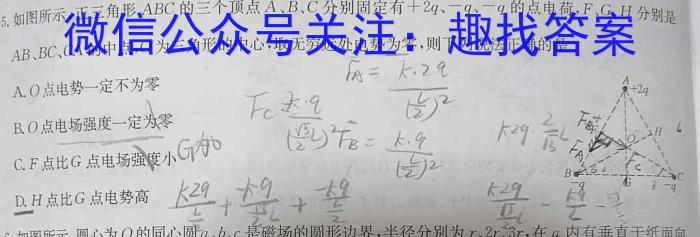 5.如图所示,正三角形ABC的三个顶点A、B、C分别固定有+2q、-q、-q的点电荷,F、G、H分别是
AB、BC、CA的中点,O为三角形的中心,取无穷远处电势为零,则下列说法正确的是
微信公众号关注:趣找答案
A.O点电势一定不为零
B.O点电场强度一定为零
C.F点比G点电场强度小
D.H点比G点电势高
F_A = k·2q / (L/2)²
F_C = k·q / (√3/2 L)²
F_B = k·q / (L/2)²
A
+2q
F
H
O
B
-q
G
C
-q
6.如图所示,圆心为O的同心圆a、b、c是磁场的圆形边界,半径分别为r、2r、3r,在a内有垂直于纸面向